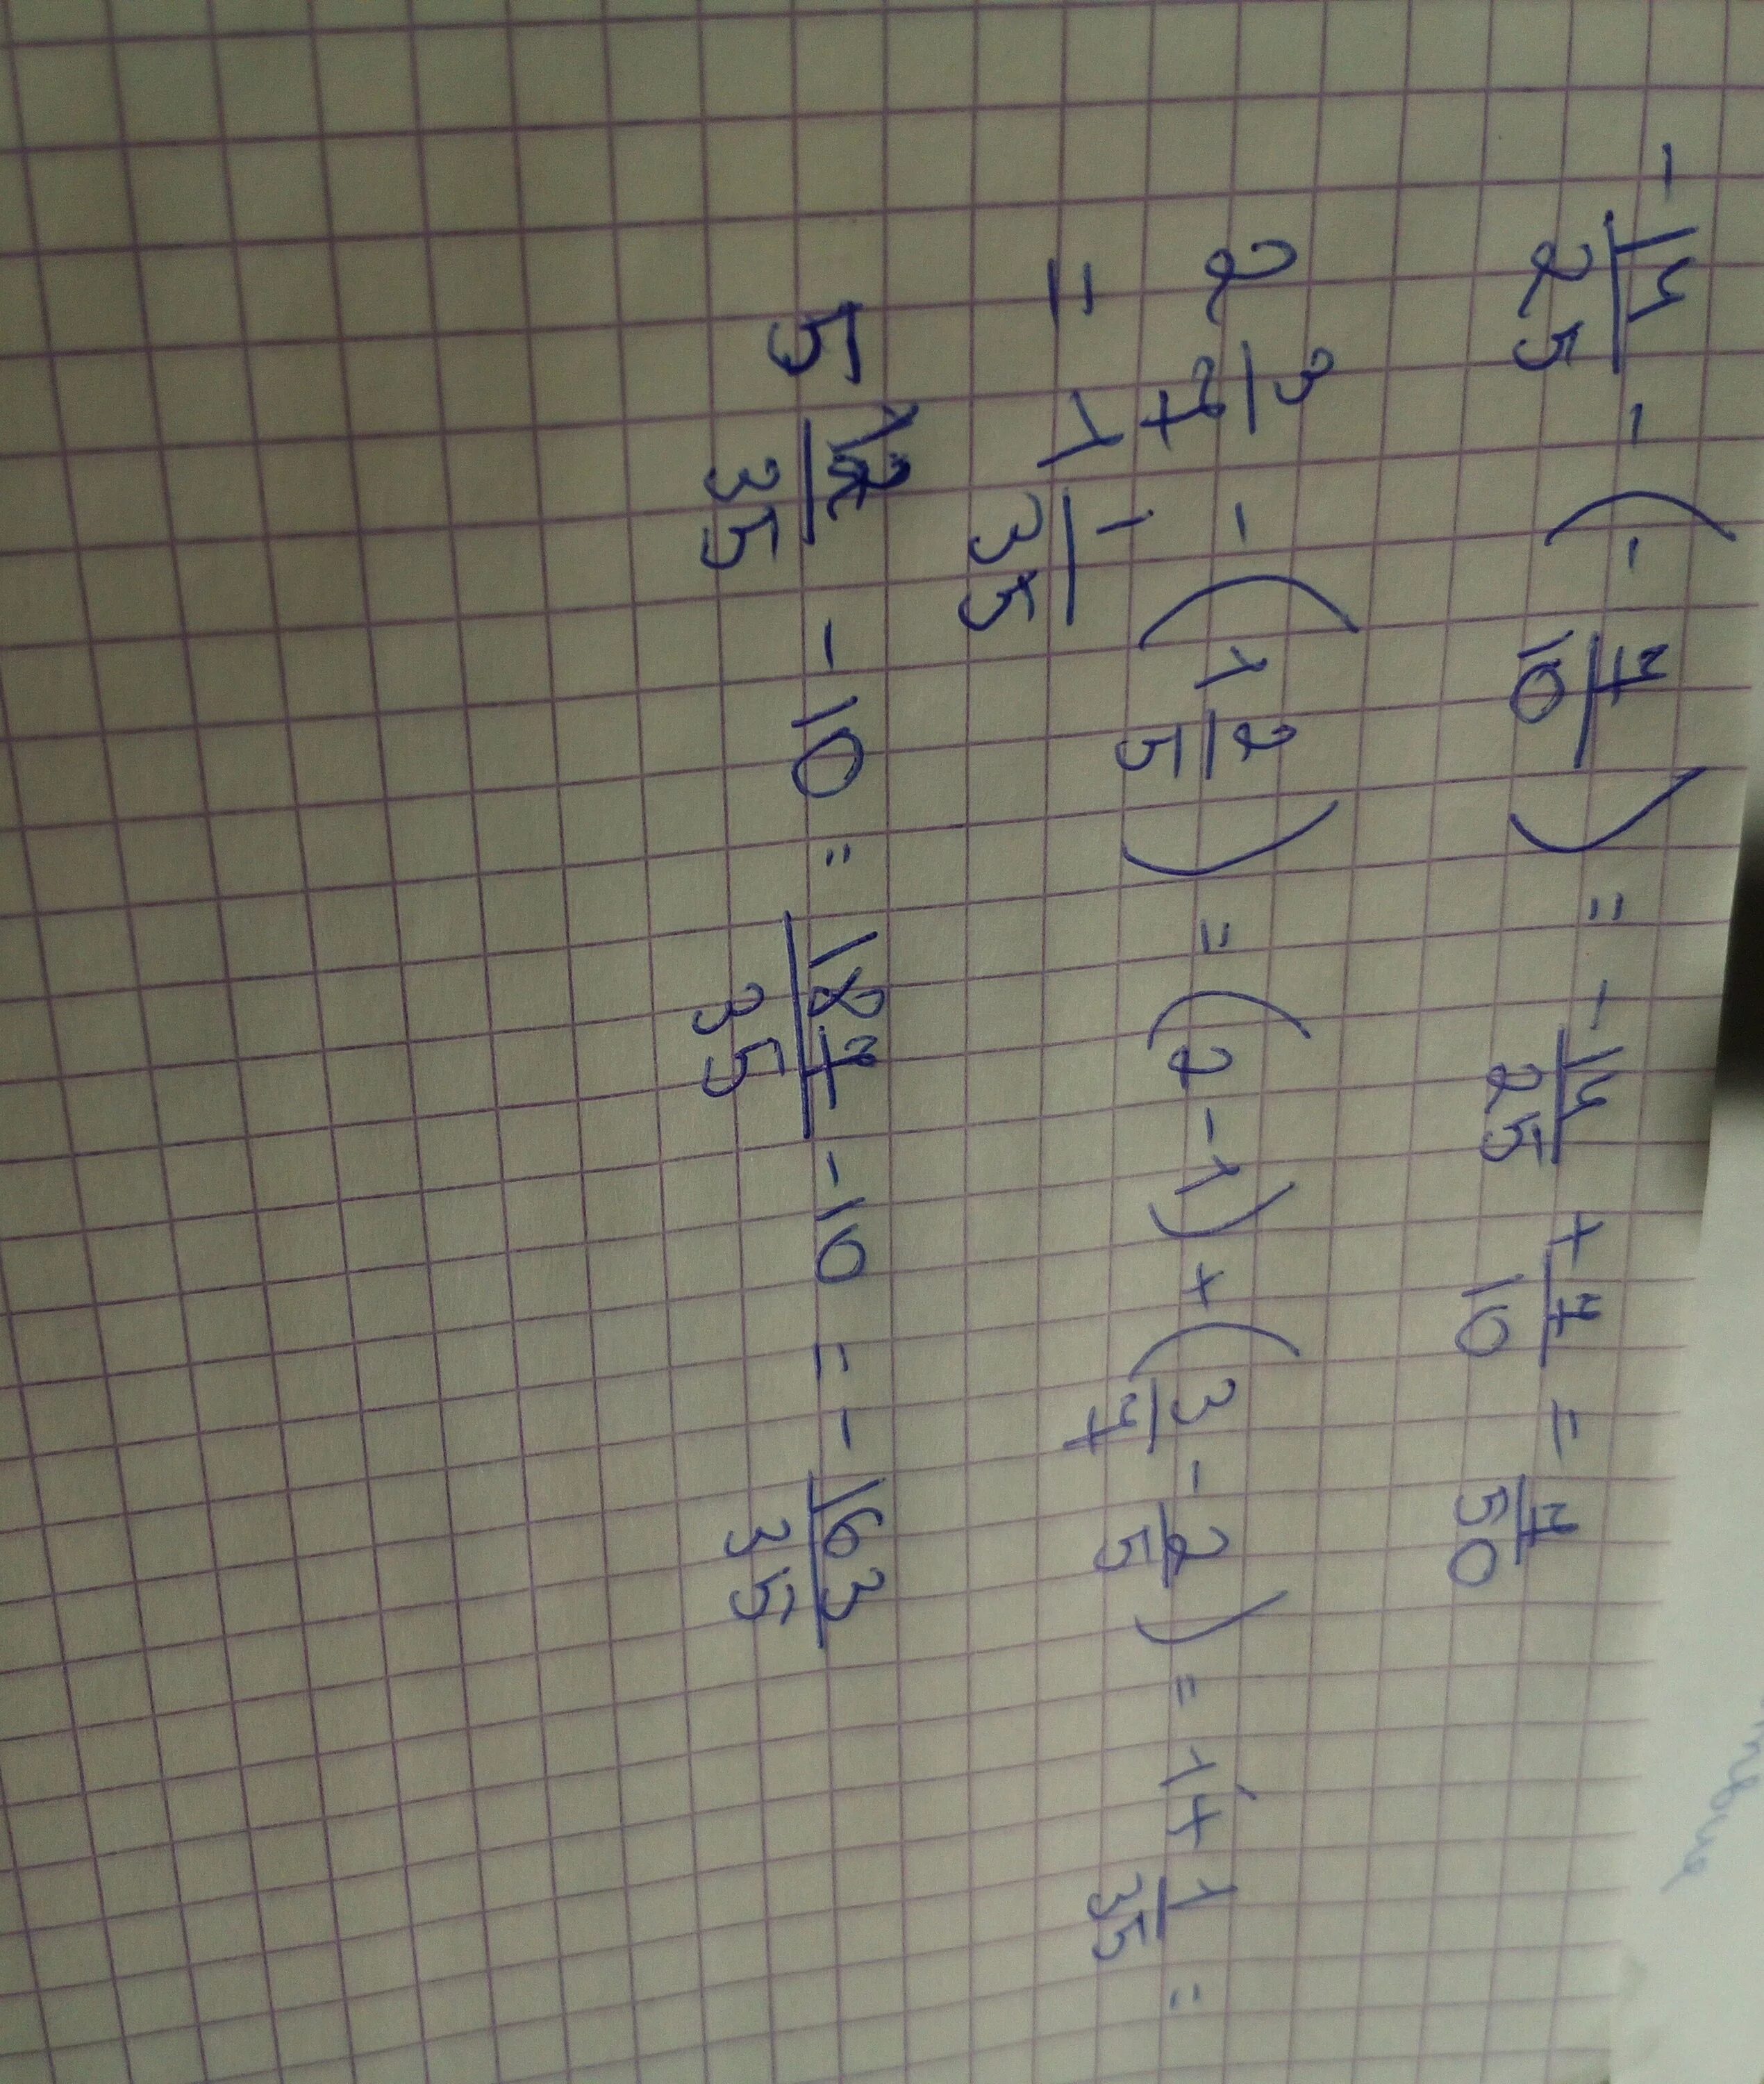 - 14/25 - (- 7/10) = - 14/25 + 7/10 = 7/50
2 3/7 - (1 2/5) = (2 - 1) + (3/7 - 2/5) = 1 + 1/35 =
= 1 1/35
5 12/35 - 10 = 187/35 - 10 = - 163/35